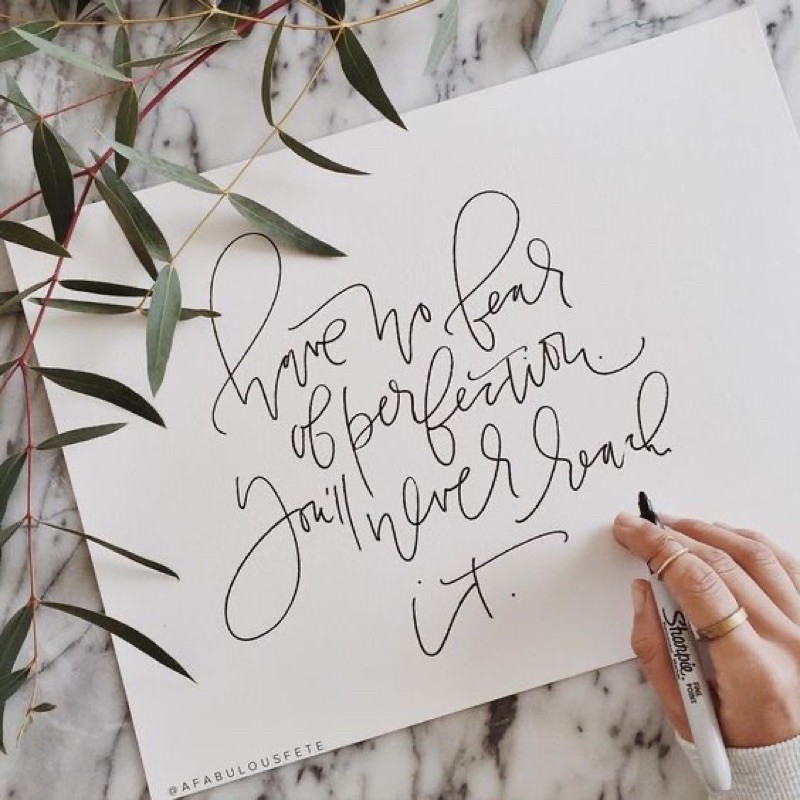 have no fear
of perfection.
you'll never reach
it.
Sharpie.
FINE POINT
@AFABULOUSFETE